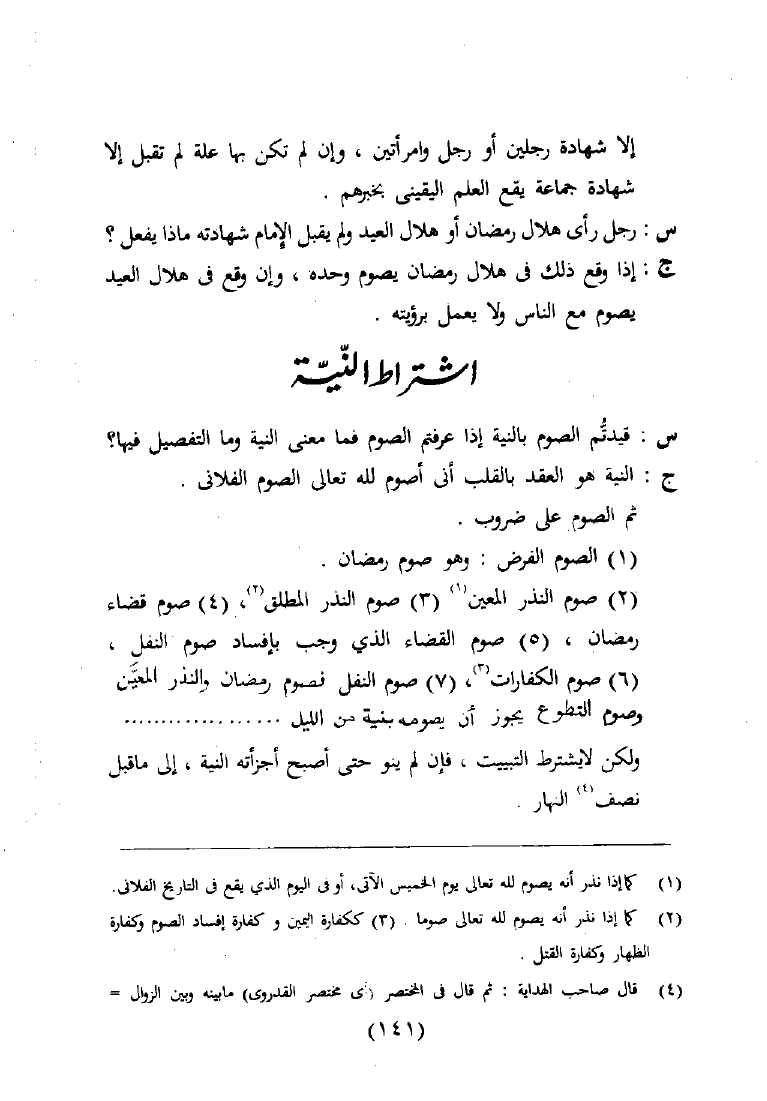 إلا شهادة رجلين أو رجل وامرأتين ، وإن لم تكن بها علة لم تقبل إلا
شهادة جماعة يقع العلم اليقينى بخبرهم .
س : رجل رأى هلال رمضان أو هلال العيد ولم يقبل الإمام شهادته ماذا يفعل ؟
ج : إذا وقع ذلك فى هلال رمضان يصوم وحده ، وإن وقع فى هلال العيد
يصوم مع الناس ولا يعمل برؤيته .
اشتراط النّيّة
س : قيدتُّم الصوم بالنية إذا عرفتم الصوم فما معنى النية وما التفصيل فيها؟
ج : النية هو العقد بالقلب أنى أصوم لله تعالى الصوم الفلانى .
ثم الصوم على ضروب .
(١) الصوم الفرض : وهو صوم رمضان .
(٢) صوم النذر المعين(١) (٣) صوم النذر المطلق(٢)، (٤) صوم قضاء
رمضان ، (٥) صوم القضاء الذي وجب بإفساد صوم النفل ،
(٦) صوم الكفارات(٣)، (٧) صوم النفل فصوم رمضان والنذر المعيَّن
وصوم التطوع يجوز أن يصومه بنية من الليل ...................
ولكن لايشترط التبييت ، فإن لم ينو حتى أصبح أجزأته النية ، إلى ماقبل
نصف(٤) النهار .
(١) كما إذا نذر أنه يصوم لله تعالى يوم الخميس الآتى، أو فى اليوم الذي يقع فى التاريخ الفلانى.
(٢) كما إذا نذر أنه يصوم لله تعالى صوما . (٣) ككفارة اليمين و كفارة إفساد الصوم وكفارة
الظهار وكفارة القتل .
(٤) قال صاحب الهداية : ثم قال فى المختصر (أى مختصر القدروى) مابينه وبين الزوال =
(١٤١)